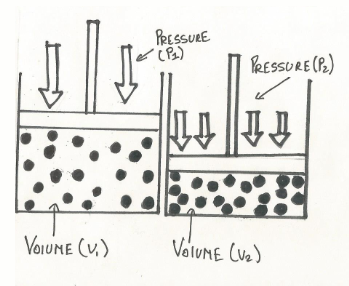 PRESSURE
(P1)
PRESSURE(P2)
VOlUME (V1)
VOlUME (V2)